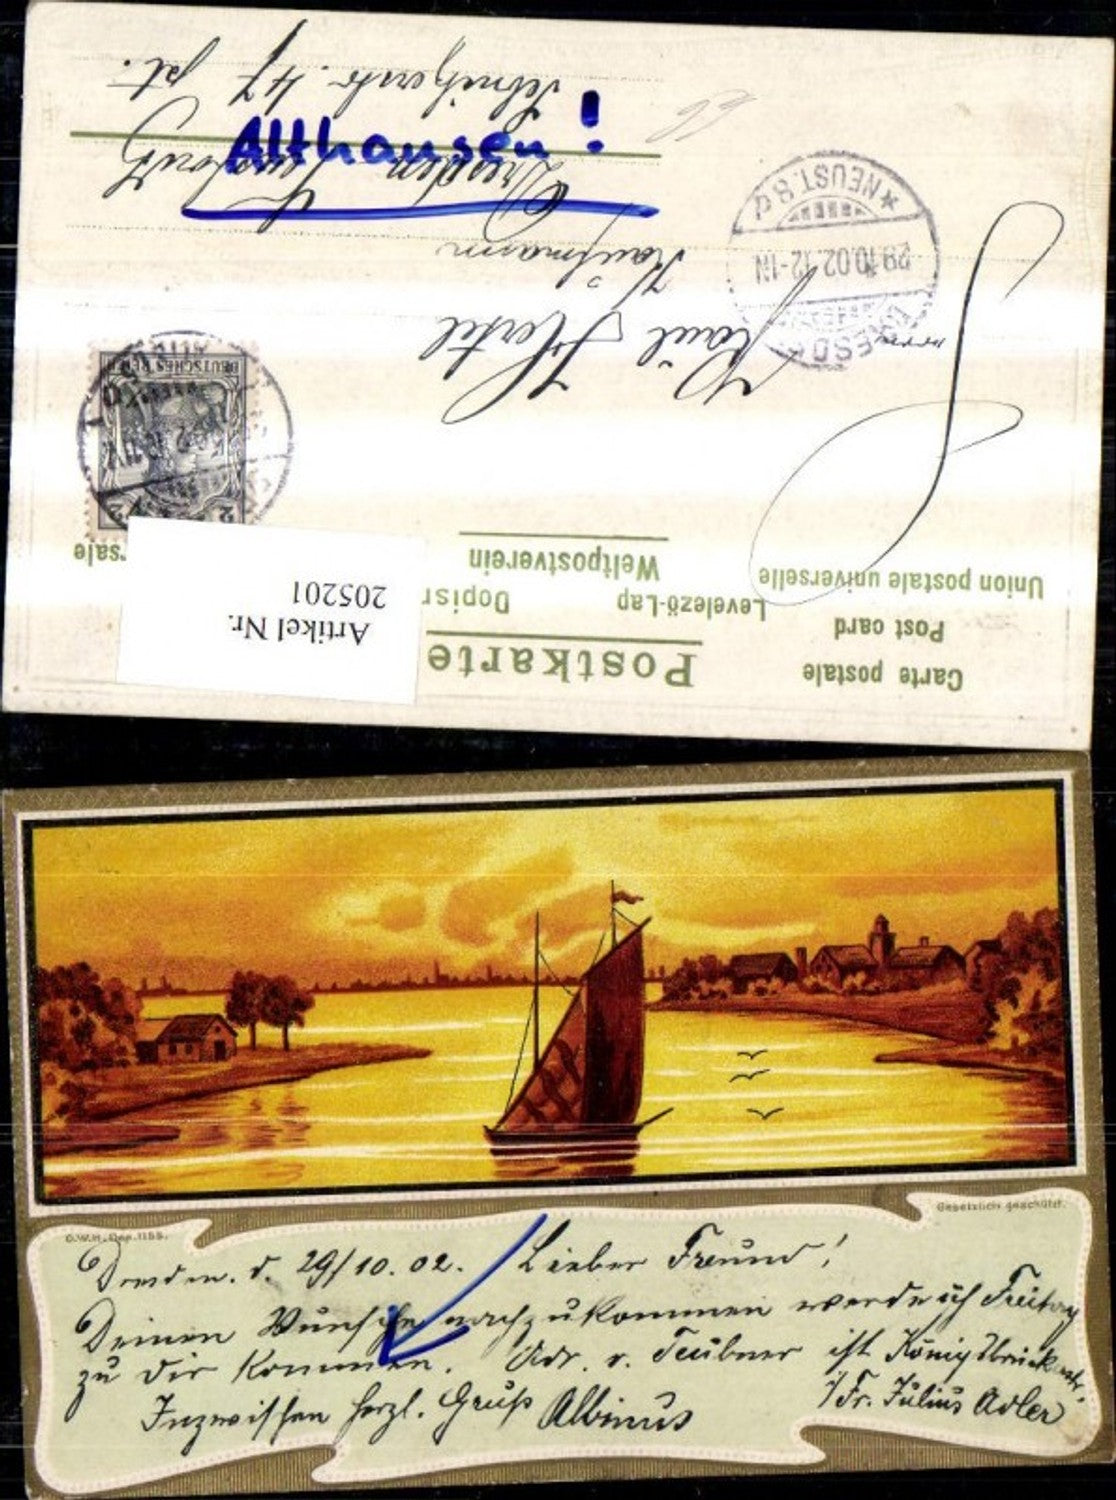 Postkarte
Carte postale
Post card
Levelező-Lap
Union postale universelle
Weltpostverein
Artikel Nr.
205201
DEUTSCHES REICH
2 2
DRESDEN
29.10.02.12-1N
* NEUST. 8 d
Herrn
Paul Hertel
Kaufmann
Dresden Neustadt
47 pt.
Althausen!
G.W.H. Dep. 1155.
Gesetzlich geschützt.
Dresden. d. 29/10.02. Lieber Freund!
Deinen Wunsche nachzukommen werde ich Freitag
zu Dir kommen. Adr. v. Teubner ist Königsbrückerstr.
i/Fr. Julius Adler
Inzwischen herzl. Gruß Albinus